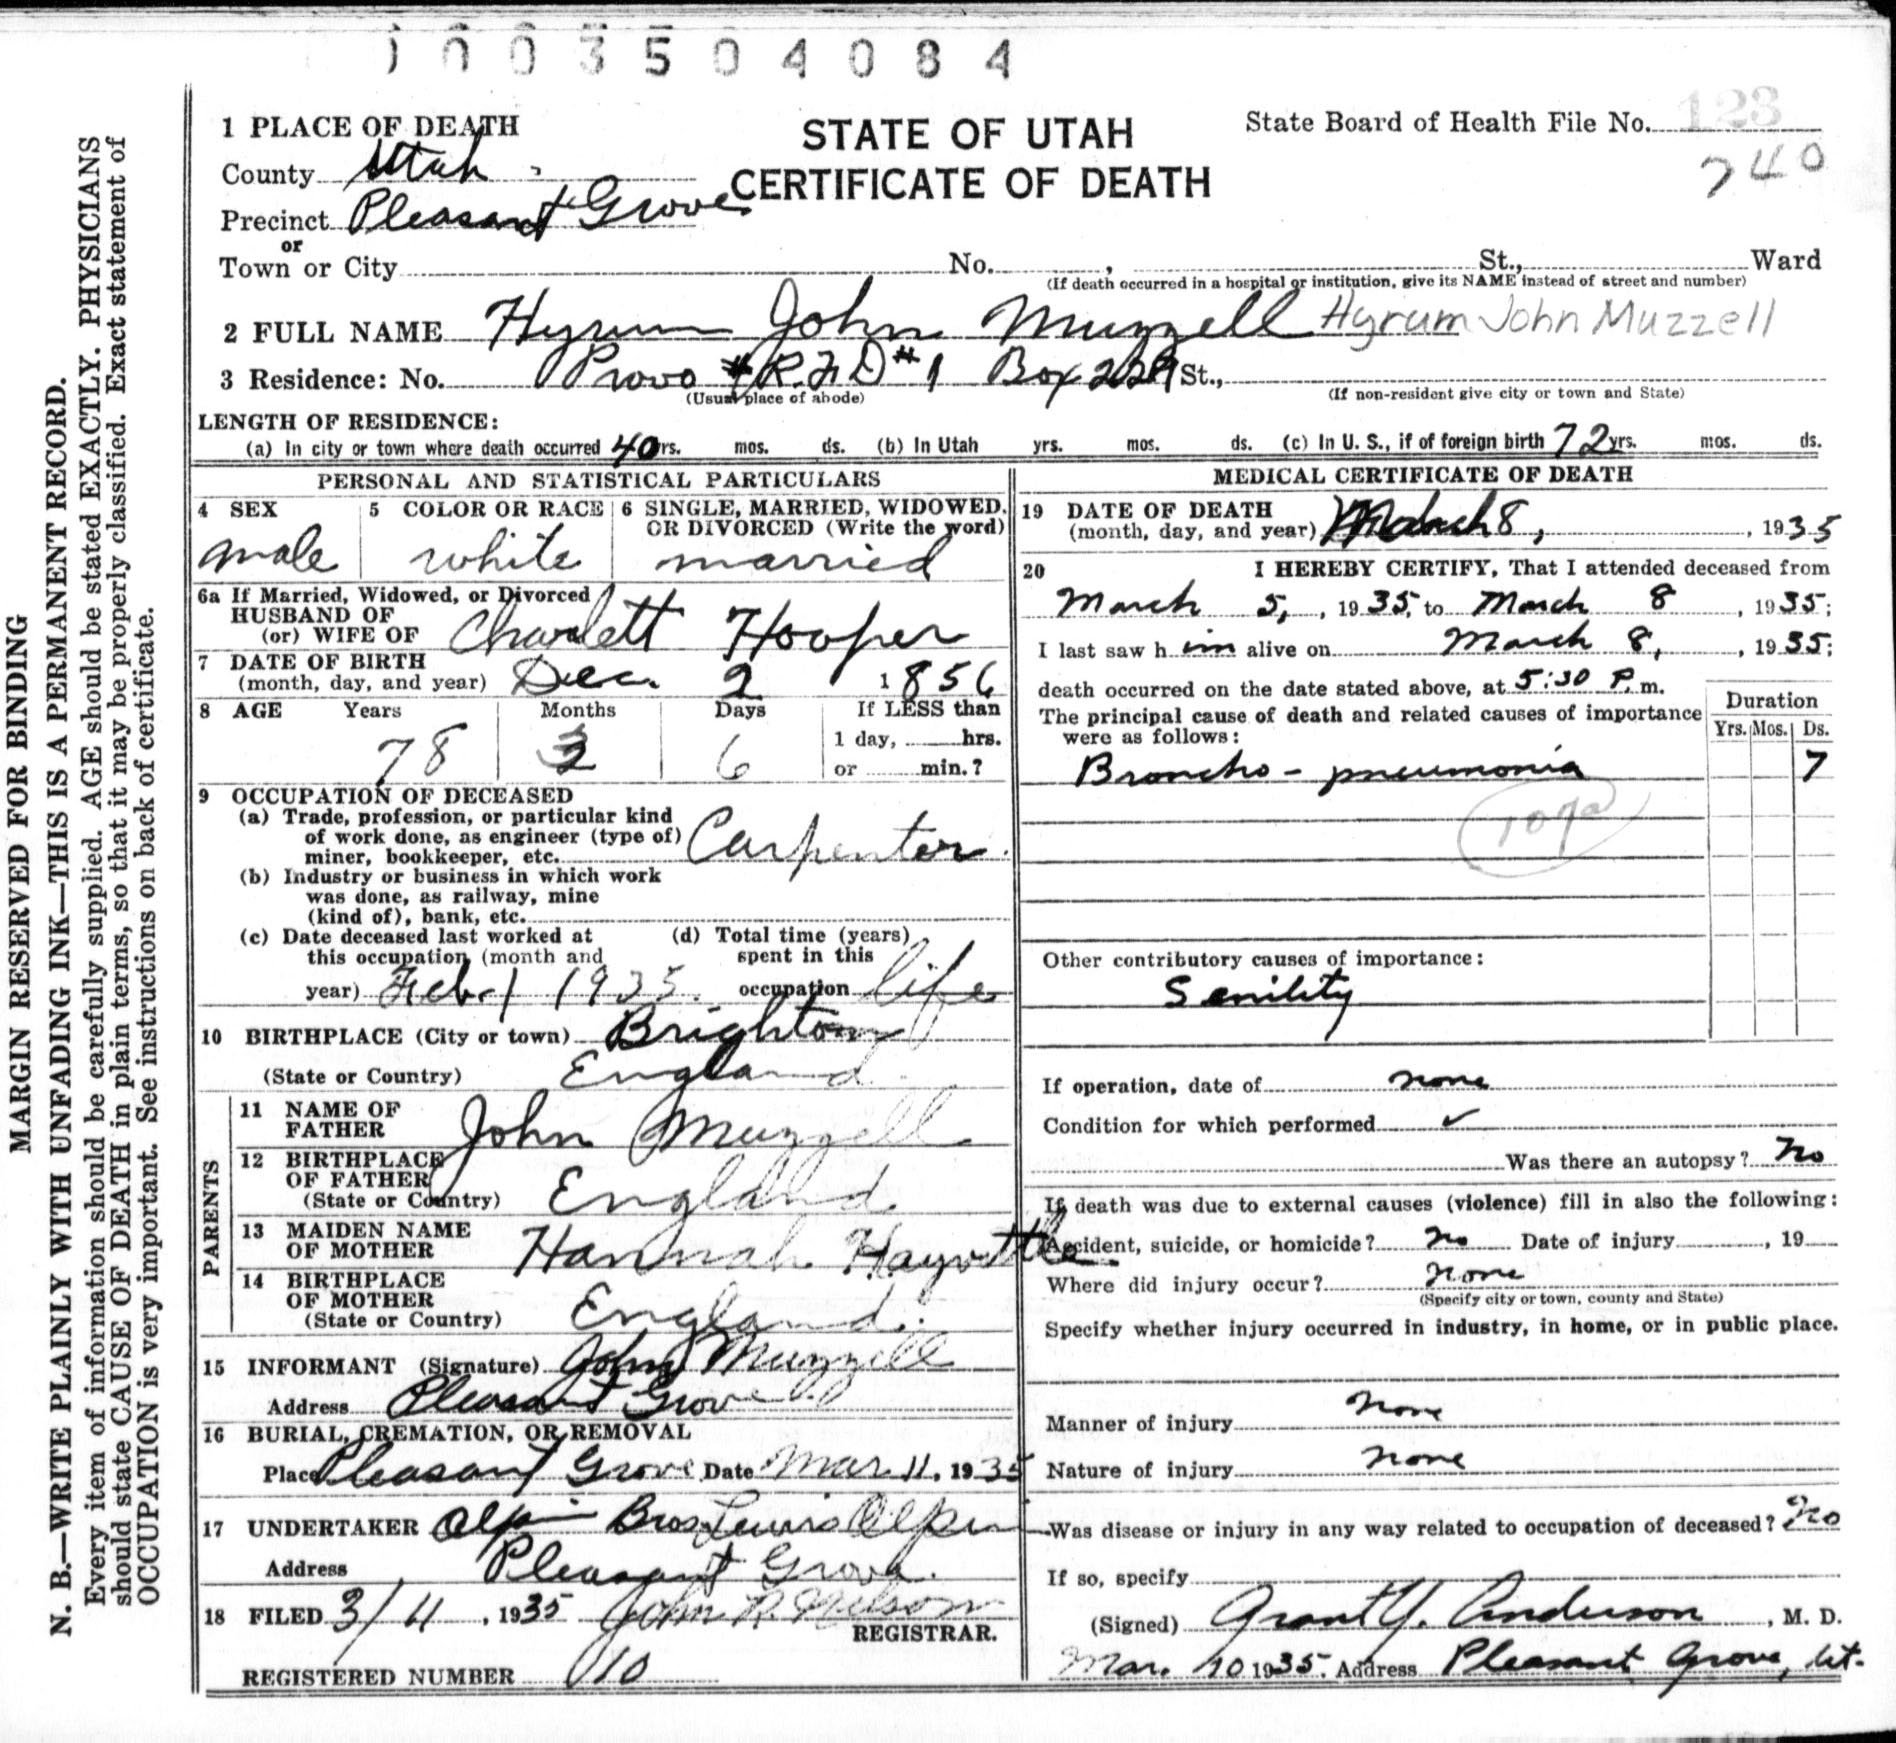 1003504084
1 PLACE OF DEATH
STATE OF UTAH
CERTIFICATE OF DEATH
State Board of Health File No. 123
240
County Utah
Precinct Pleasant Grove
or
Town or City No. , St., Ward
(If death occurred in a hospital or institution, give its NAME instead of street and number)
2 FULL NAME Hyrum John Muzzell Hyrum John Muzzell
3 Residence: No. Provo # R.F.D #1 Box 229 St.,
(Usual place of abode) (If non-resident give city or town and State)
LENGTH OF RESIDENCE:
(a) In city or town where death occurred 40 yrs. mos. ds. (b) In Utah yrs. mos. ds. (c) In U. S., if of foreign birth 72 yrs. mos. ds.
PERSONAL AND STATISTICAL PARTICULARS
4 SEX
male
5 COLOR OR RACE
white
6 SINGLE, MARRIED, WIDOWED, OR DIVORCED (Write the word)
married
6a If Married, Widowed, or Divorced
HUSBAND OF
(or) WIFE OF Charlett Hooper
7 DATE OF BIRTH
(month, day, and year) Dec. 2 1856
8 AGE Years Months Days If LESS than
78 2 6 1 day, hrs.
or min.?
9 OCCUPATION OF DECEASED
(a) Trade, profession, or particular kind
of work done, as engineer (type of)
miner, bookkeeper, etc. Carpenter
(b) Industry or business in which work
was done, as railway, mine
(kind of), bank, etc.
(c) Date deceased last worked at
this occupation (month and
year) Feb. 1 1935.
(d) Total time (years)
spent in this
occupation life
10 BIRTHPLACE (City or town) Brighton
(State or Country) England
PARENTS
11 NAME OF
FATHER John Muzzell
12 BIRTHPLACE
OF FATHER
(State or Country) England
13 MAIDEN NAME
OF MOTHER Hannah
14 BIRTHPLACE
OF MOTHER
(State or Country) England.
15 INFORMANT (Signature) John Muzzell
Address Pleasant Grove
16 BURIAL, CREMATION, OR REMOVAL
Place Pleasant Grove Date Mar 11, 1935
17 UNDERTAKER Olpin Bros Lewis Olpin
Address Pleasant Grove.
18 FILED 3/11, 1935 John R. Nelson
REGISTRAR.
REGISTERED NUMBER 10
MEDICAL CERTIFICATE OF DEATH
19 DATE OF DEATH
(month, day, and year) March 8, , 1935
20 I HEREBY CERTIFY, That I attended deceased from
March 5, , 1935, to March 8 , 1935;
I last saw h im alive on March 8, , 1935;
death occurred on the date stated above, at 5:30 P. m.
The principal cause of death and related causes of importance
were as follows:
Duration
Yrs. Mos. Ds.
Broncho-pneumonia 7
107a
Other contributory causes of importance:
Senility
If operation, date of none
Condition for which performed ✓
Was there an autopsy? No
If death was due to external causes (violence) fill in also the following:
Accident, suicide, or homicide? no Date of injury , 19
Where did injury occur? none
(Specify city or town, county and State)
Specify whether injury occurred in industry, in home, or in public place.
Manner of injury none
Nature of injury none
Was disease or injury in any way related to occupation of deceased? No
If so, specify
(Signed) Grant Y. Anderson , M. D.
Mar. 10 1935. Address Pleasant Grove, Ut.
MARGIN RESERVED FOR BINDING
N. B.—WRITE PLAINLY WITH UNFADING INK—THIS IS A PERMANENT RECORD.
Every item of information should be carefully supplied. AGE should be stated EXACTLY. PHYSICIANS
should state CAUSE OF DEATH in plain terms, so that it may be properly classified. Exact statement of
OCCUPATION is very important. See instructions on back of certificate.